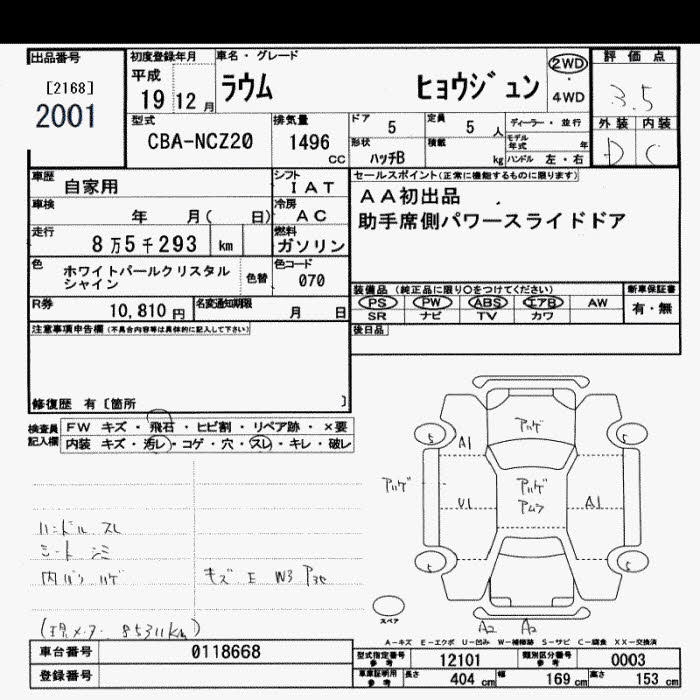 出品番号
[2168]
2001
初度登録年月
平成
19 12 月
車名・グレード
ラウム ヒョウジュン
2WD
4WD
評価点
3.5
外装 内装
D C
型式
CBA-NCZ20
排気量
1496 CC
ドア 5
定員 5 人
ディーラー・並行
形状 ハッチB
積載 kg
モデル年式 年
ハンドル 左・右
車歴 自家用
シフト IAT
セールスポイント(正常に機能するものに限ります)
AA初出品
助手席側パワースライドドア
車検 年 月( 日)
冷房 AC
走行 8万5千293 km
燃料 ガソリン
色 ホワイトパールクリスタル
シャイン
色替
色コード 070
装備品 (純正品に限り○をつけてください)
新車保証書
PS PW ABS エアB AW
有・無
SR ナビ TV カワ
R券 10,810 円
名変通知期限 月 日
後日品
注意事項申告欄(不具合内容等は具体的に記入して下さい)
修復歴 有[箇所 ]
検査員
記入欄
FW キズ・飛石・ヒビ割・リペア跡・×要
内装 キズ・汚レ・コゲ・穴・スレ・キレ・破レ
ハンドル スレ
シート シミ
内バリ ハゲ
キズ E W3
(現メーター 85311km)
アハゲ
5 A1 5
アハゲ アハゲ
アムラ
U1 A1
5 5
スペア
A2 A2
A-キズ E-エクボ U-凹み W-補修跡 S-サビ C-腐食 XX-交換済
車台番号 0118668
登録番号
型式指定番号
参考
12101
類別区分番号
参考
0003
車庫証明用
参考
長さ 404 cm 幅 169 cm 高さ 153 cm